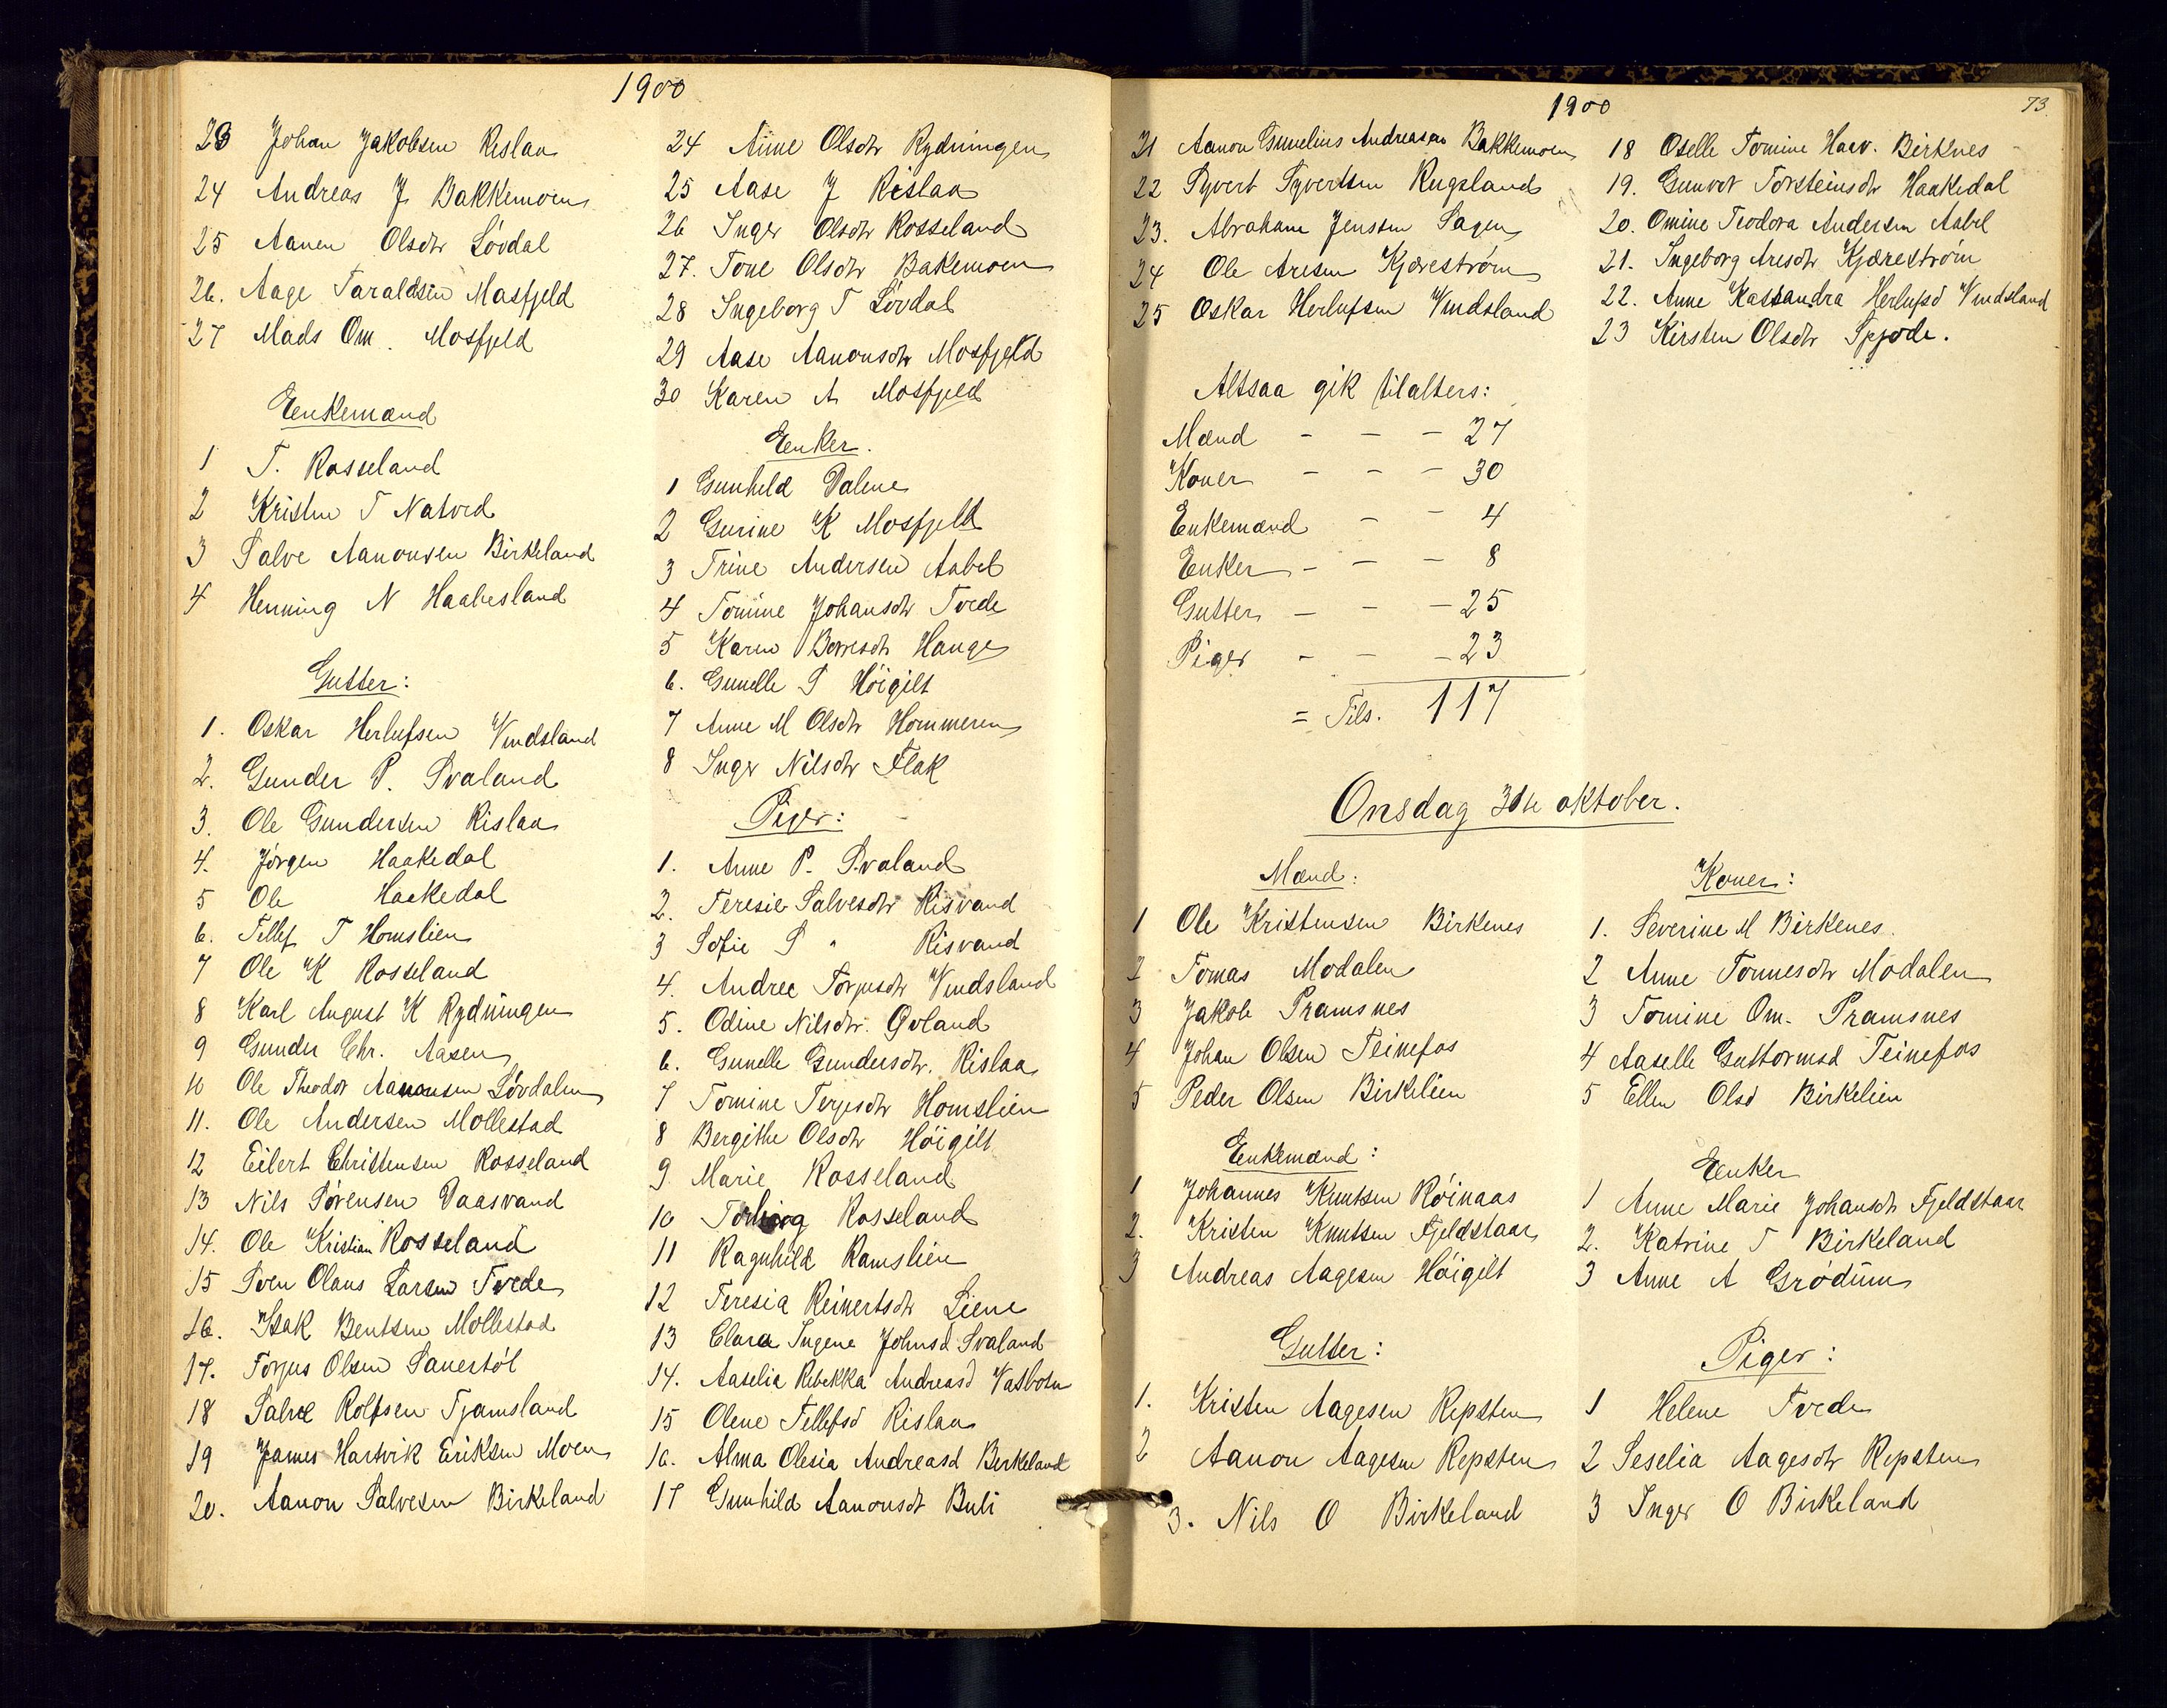 1900
23 Johan Jakobsen Rislaa
24 Andreas J. Bakkemoen
25 Aanen Olsdtr Lövdal
26. Aage Taraldsen Mosfjeld
27 Mads Om. Mosfjeld
Enkemænd
1 T. Rosseland
2 Kristen T Natved
3 Salve Aanonsen Birkeland
4 Henning N Haabesland
Gutter:
1. Oskar Herlufsen Vindsland
2. Gunder P. Svaland
3. Ole Gundersen Rislaa
4. Jörgen Haakedal
5 Ole Haakedal
6. Tellef T Homslien
7 Ole K Rosseland
8 Karl August K Rydningen
9 Gunder Chr. Aasen
10 Ole Theodor Aanonsen Lövdalen
11. Ole Andersen Mollestad
12 Eilert Christensen Rosseland
13 Nils Sörensen Daasvand
14. Ole Kristian Rosseland
15 Sven Olaus Larsen Tvede
16. Isak Bentsen Mollestad
17. Torjus Olsen Sanestöl
18 Salve Rolfsen Tjamsland
19 James Hartvik Eriksen Moen
20. Aanon Salvesen Birkeland
24 Anne Olsdtr Rydningen
25 Aase J Rislaa
26 Inger Olsdtr Rosseland
27. Tone Olsdtr Bakemoen
28 Ingeborg T Lövdal
29 Aase Aanonsdtr Mosfjeld
30 Karen A Mosfjeld
Enker.
1 Gunhild Dalene
2 Gurine K Mosfjeld
3 Trine Andersen Aabel
4 Tomine Johansdtr Tvede
5 Karen Borresdtr Hauge
6. Gunelle S Höigilt
7 Anne M Olsdtr Hommeren
8 Inger Nilsdtr Flak
Piger:
1. Anne P. Svaland
2. Teresie Salvesdtr Risvand
3 Sofie S " Risvand
4. Andree Torjusdtr Vindsland
5. Odine Nilsdtr. Ovland
6. Gunelle Gundersdtr. Rislaa
7 Tomine Terjesdtr Homslien
8 Bergithe Olsdtr Höigilt
9 Marie Rosseland
10 Torborg Rosseland
11 Ragnhild Ramslien
12 Teresia Reinertsdtr Liene
13 Clara Ingene Johnsd Svaland
14. Aaselia Rebekka Andreasd Vatbotn
15 Olene Tellefsd Rislaa
16. Alma Olesia Andreasd Berkeland
17 Gunhild Aanonsdt Buli
1900
73
21 Aanon Gunelius Andreasen Bakkemoen
22 Syvert Syvertsen Rugsland
23. Abraham Jenssen Sagen
24 Ole Aresen Kjæreström
25 Oskar Herlufsen Vindsland
18 Oselle Tomine Haav. Birknes
19. Gunvor Torsteinsdtr Haakedal
20. Omine Teodora Andersen Aabel
21. Ingeborg Aresdtr Kjæreström
22. Anne Kassandra Herlufsd Vindsland
23 Kirsten Olsdtr Spjode.
Altsaa gik tilalters:
Mænd - - - 27
Koner - - - 30
Enkemænd - - 4
Enker - - - 8
Gutter - - - 25
Piger - - - 23
= Tils. 117
Onsdag 31te oktober.
Mænd:
1 Ole Kristensen Birkenes
2 Tomas Modalen
3 Jakob Pramsnes
4 Johan Olsen Teinefos
5 Peder Olsen Birkelien
Enkemænd:
1 Johannes Knutsen Röinaas
2. Kristen Knutsen Fjeldstaar
3 Andreas Aagesen Höigilt
Gutter:
1. Kristen Aagesen Repsten
2 Aanon Aagesen Repsten
3. Nils O Birkeland
Koner:
1. Severine M Birkenes.
2 Anne Tonnesdtr Modalen
3 Tomine Om. Pramsnes
4 Aaselle Guttormsd Teinefos
5 Ellen Olsd Birkelien
Enker
1 Anne Marie Johansdt Fjeldstaar
2. Katrine T Birkeland
3 Anne A Grödum
Piger:
1 Helene Tvede
2 Seselia Aagesdtr Repsten
3 Inger O Birkeland